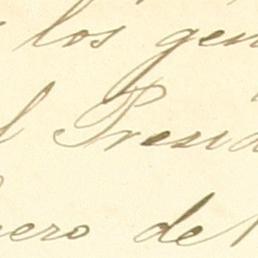 y los gen
l Presid
nero del